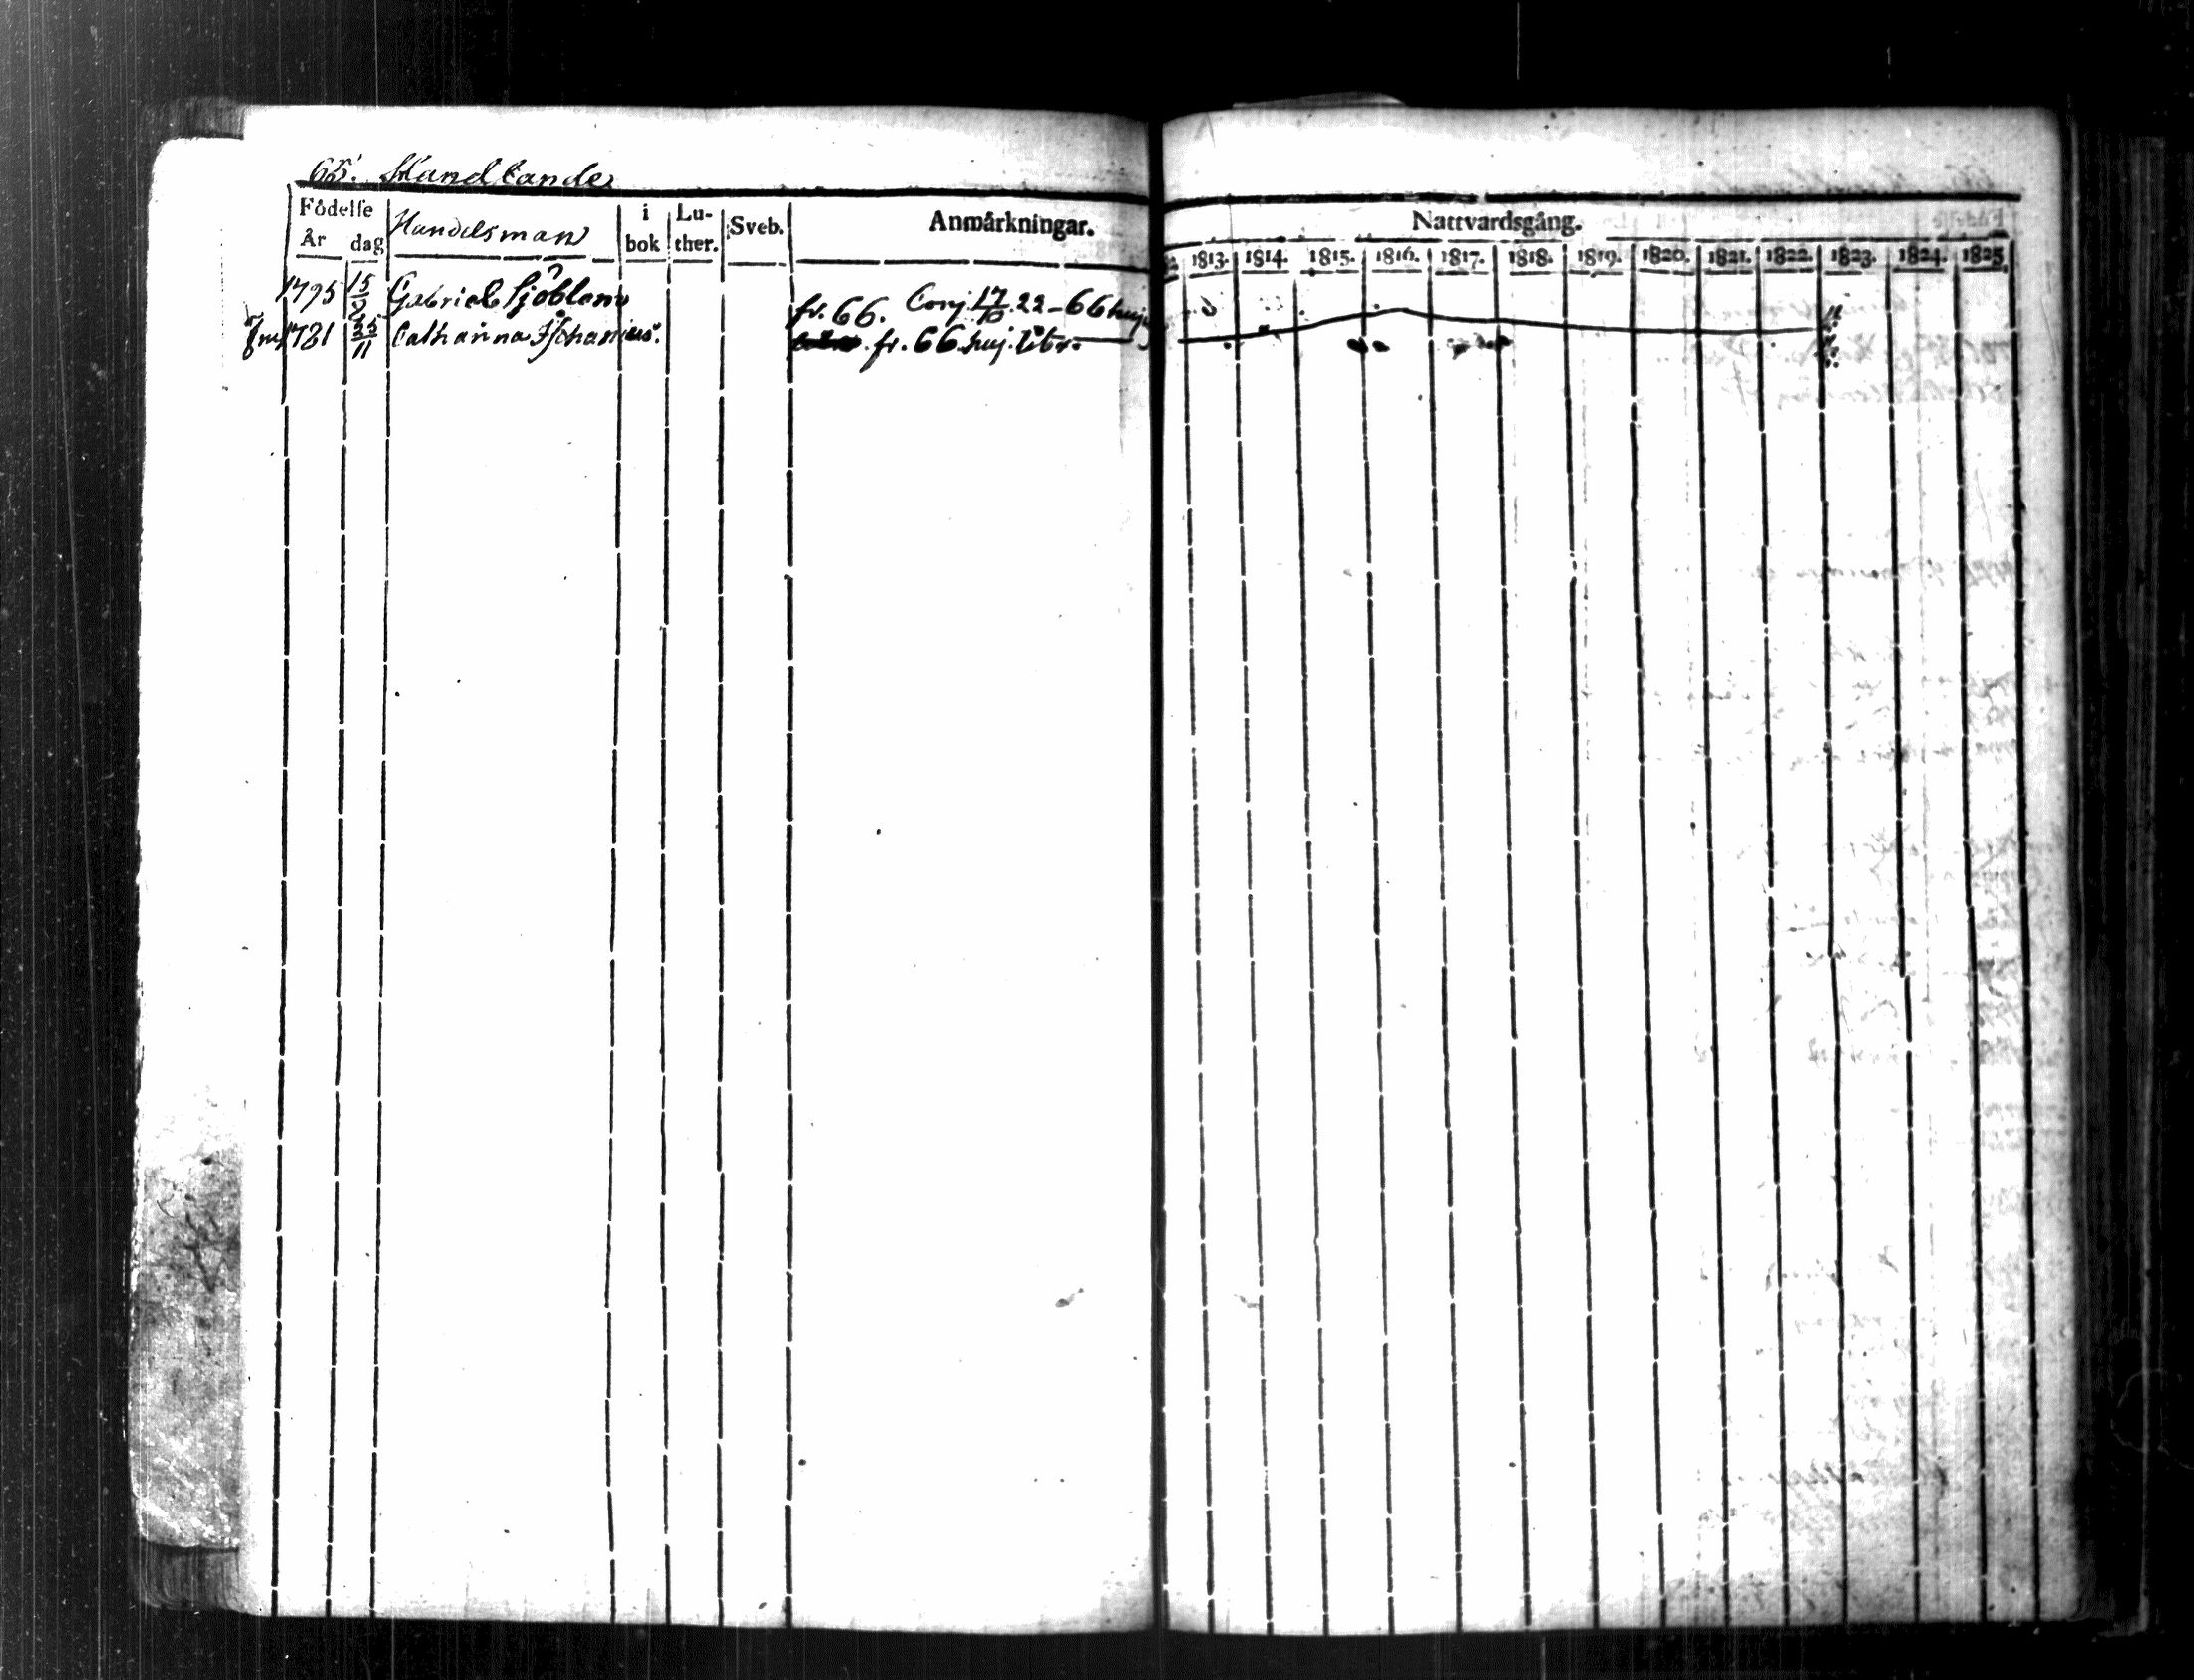 65. Handlande
Födelse Handelsman i Lu- Sveb. Anmärkningar. Nattvardsgång.
År dag bok ther. 1813. 1814. 1815. 1816. 1817. 1818. 1819. 1820. 1821. 1822. 1823. 1824. 1825.
1795 15 Gabriel Sjöblom fr. 66. Conj. 17/10 22 – 66 huj
1781 25/11 Catharina fr. 66. huj. libr.